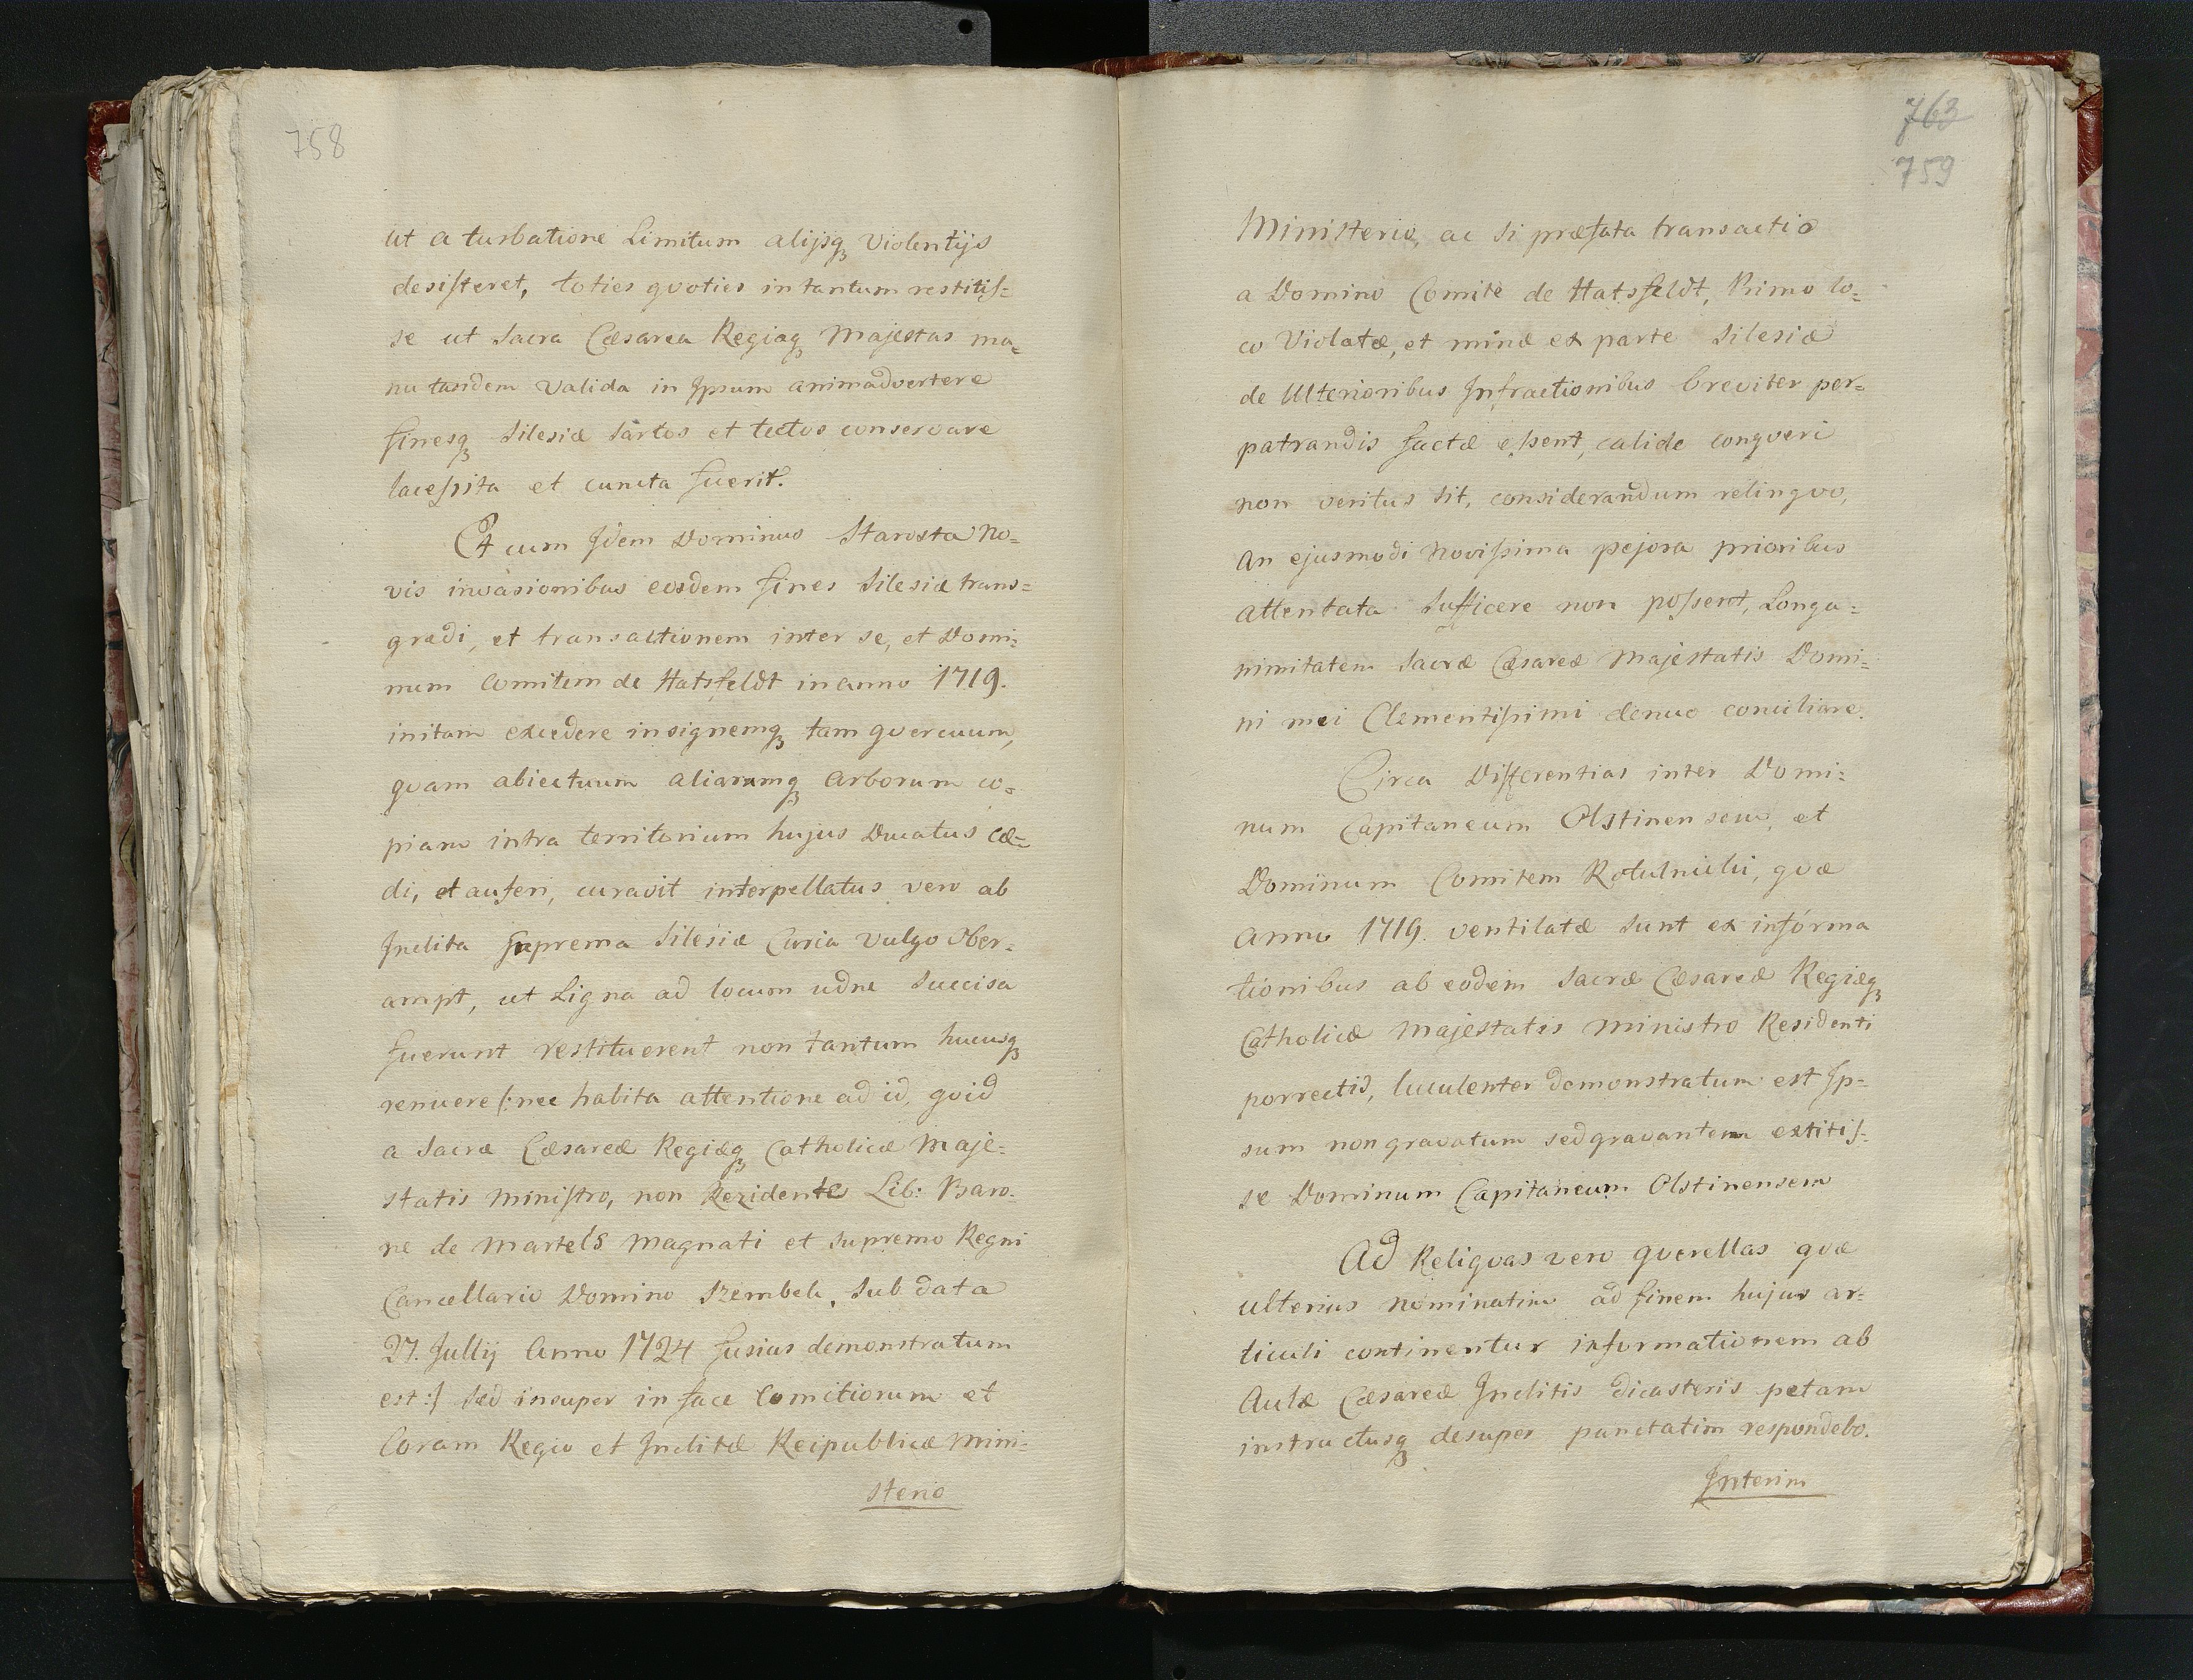 758
ut a turbatione Limitum alijsq₃ Violentijs
desisteret, toties qvoties in tantum restitis=
se ut Sacra Cæsarea Regiaq₃ Majestas ma=
nu tandem valida in Ipsum animadvertere
finesq₃ Silesiæ Sartos et tectos conservare
lacessita et cuncta fuerit.
Et cum Idem Dominus Starosta No=
vis invasionibus eosdem fines Silesiæ trans=
gredi, et transactionem inter se, et Domi=
num Comitem de Hatsfeldt in anno 1719.
initam excedere insignemq₃ tam qvercuum,
qvam abiectuum aliarumq₃ Arborum co=
piam intra territorium hujus Ducatus cæ=
di, et auferi, curavit interpellatus vero ab
Inclita Suprema Silesiæ Curia vulgo Ober=
ampt, ut Ligna ad locum udne Succisa
fuerunt restituerent non tantum hucusq₃
renuere /: nec habita attentione ad id, qvid
a Sacræ Cæsareæ Regiæq₃ Catholicæ Maje=
statis Ministro, non Rezidente Lib: Baro=
ne de Martels Magnati et Supremo Regni
Cancellario Domino Szembek, Sub data
27. Jullij Anno 1724 fusius demonstratum
est :/ Sed insuper in face Comitiorum et
Coram Regio et Inclitæ Reipublicæ Mini=
sterio
763
759
Ministerio, ac Si præfata transactio
a Domino Comite de Hatsfeldt, Primo lo=
co Violatæ, et minæ ex parte Silesiæ
de Ulterioribus Infractionibus breviter per=
patrandis factæ essent, calide conqveri
non veritus Sit, considerandum relinqvo,
An ejusmodi Novissima pejora prioribus
attentata Sufficere non possent, Longa=
nimitatem Sacræ Cæsareæ Majestatis Domi=
ni mei Clementissimi denuo conciliare.
Circa Differentias inter Domi=
num Capitaneum Olstinensem, et
Dominum Comitem Kotulnicki, qvæ
Anno 1719. ventilatæ Sunt ex informa
tionibus ab eodem Sacræ Cæsareæ Regiæq₃
Catholicæ Majestatis Ministro Residenti
porrectis, luculenter demonstratum est Ip=
sum non gravatum sed gravantem extitis=
se Dominum Capitaneum Olstinensem
Ad Reliqvas vero qverellas qvæ
ulterius nominatim ad finem hujus ar=
ticuli continentur informationem ab
Aulæ Cæsareæ Inclitis Dicasteris petam
instructusq₃ desuper punctatim respondebo.
Interim